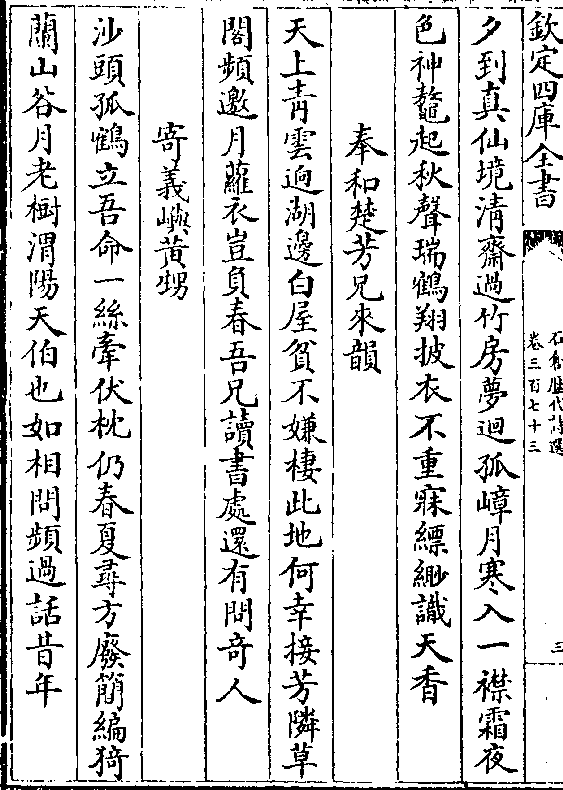 欽定四庫全書
石倉歷代詩選
卷三百七十三
三
夕到真仙境清齋過竹房夢迴孤嶂月寒入一襟霜夜
色神鼇起秋聲瑞鶴翔披衣不重寐縹緲識天香
奉和楚芳兄來韻
天上青雲逈湖邊白屋貧不嫌棲此地何幸接芳隣草
閣頻邀月蘿衣豈負春吾兄讀書處還有問奇人
寄義嶼黄甥
沙頭孤鶴立吾命一絲牽伏枕仍春夏尋方廢簡編猗
蘭山谷月老樹渭陽天伯也如相問頻過話昔年